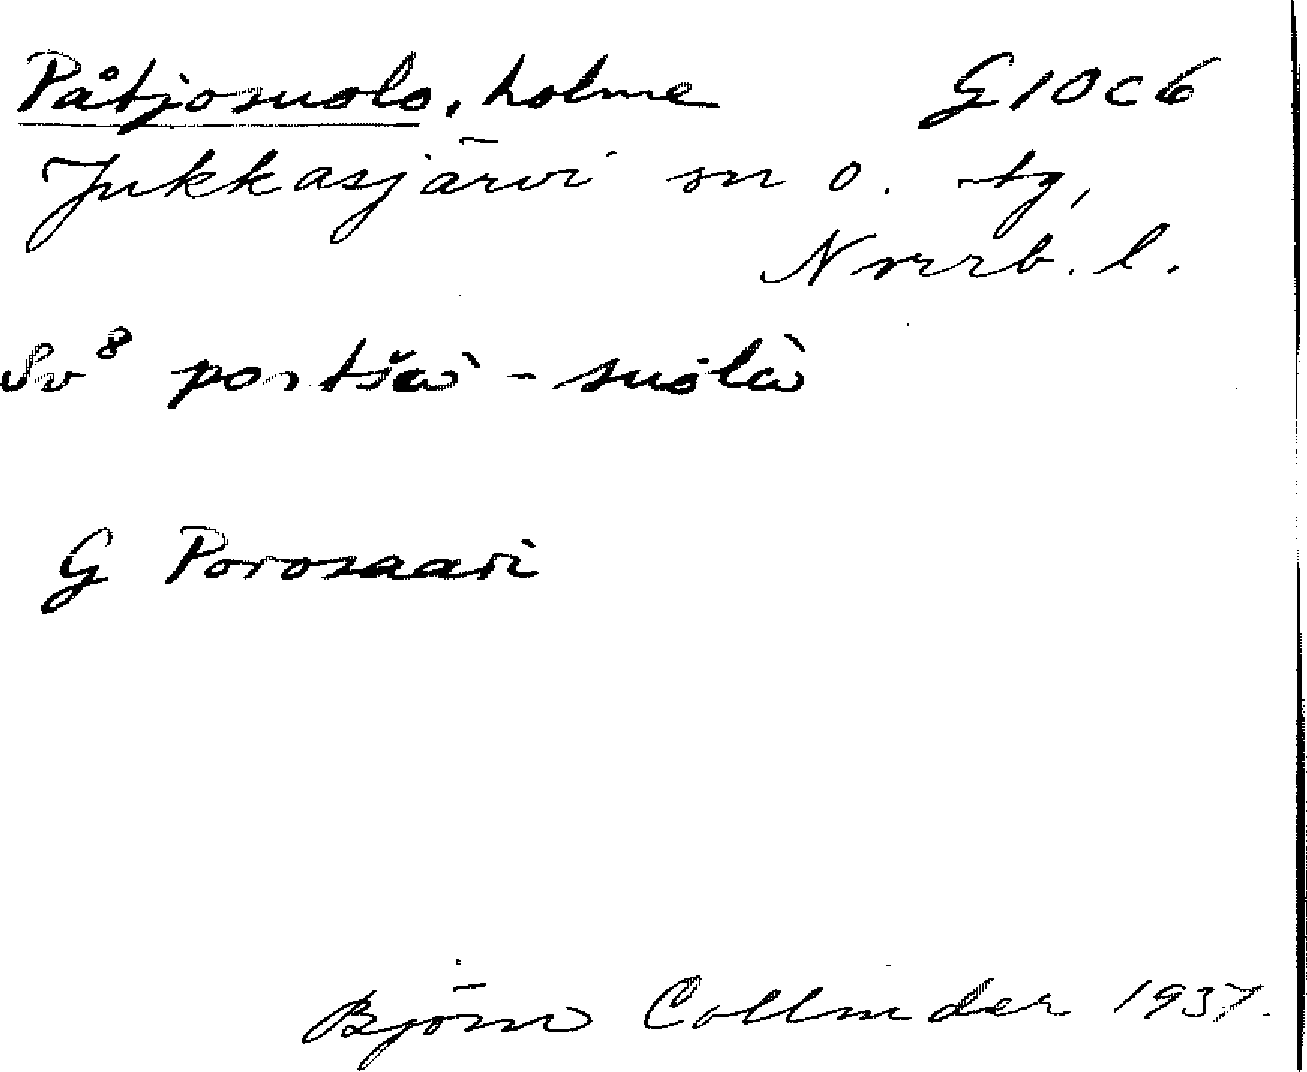 Påtjosuolo, holme G10c6
Jukkasjärvi sn o. tg,
Nrrb. l.
Sv⁸ portšɑ̀ - suòlɑ̀
G Porosaari
Björn Collinder 1937.